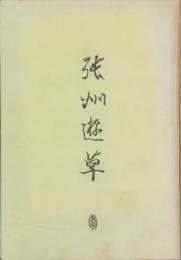 張州遊草